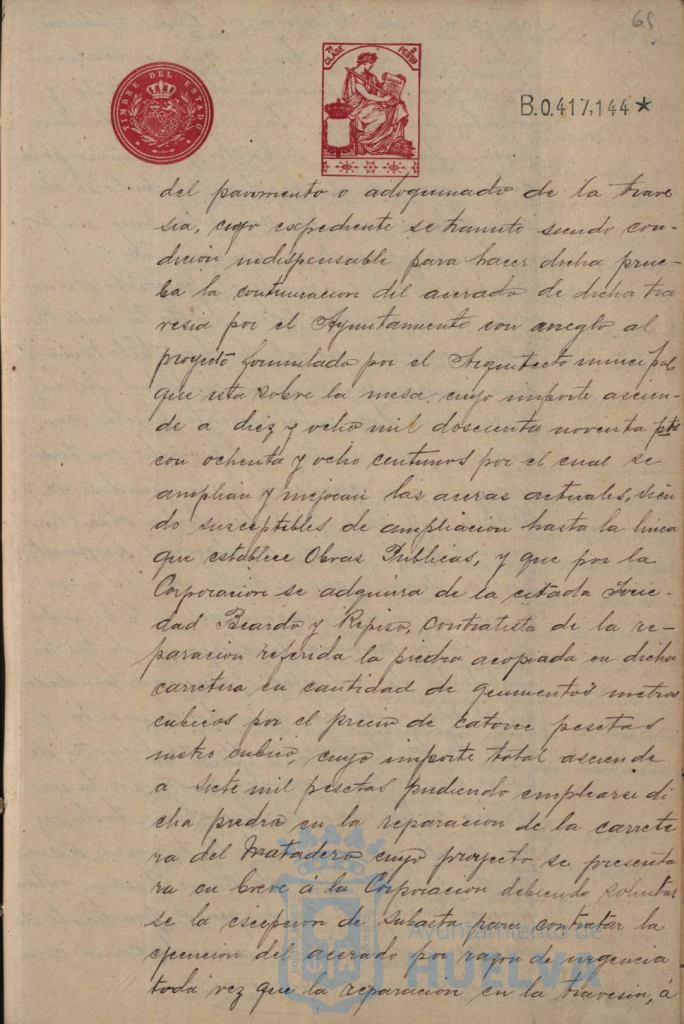 65
TIMBRE DEL ESTADO
7ª CLASE
2 PESETAS
B.0.417,144*
del pavimento o adoquinado de la trave
sia, cuyo expediente se tramita siendo con-
dicion indispensable para hacer dicha prue-
ba la continuacion del acerado de dicha tra
vesia por el Ayuntamiento con arreglo al
proyecto formulado por el Arquitecto municipal
que esta sobre la mesa, cuyo importe ascien-
de a diez y ocho mil doscienta noventa pts
con ochenta y ocho centimos por el cual se
amplian y mejoran las aceras actuales, sien
do susceptibles de ampliacion hasta la linea
que establece Obras Publicas, y que por la
Corporacion se adquiera de la citada Socie-
dad Beardo y Repiso, contratista de la re-
paracion referida la piedra acopiada en dicha
carretera en cantidad de quinientos metros
cubicos por el precio de catorce pesetas
metro cubico, cuyo importe total asciende
a siete mil pesetas pudiendo emplearse di
cha piedra en la reparacion de la carrete
ra del Matadero cuyo proyecto se presenta
ra en breve á la Corporacion debiendo solicitar
se la escepcion de subasta para contratar la
ejecucion del acerado por razon de urgencia
toda vez que la reparacion en la travesia, á
Ayuntamiento de
HUELVA